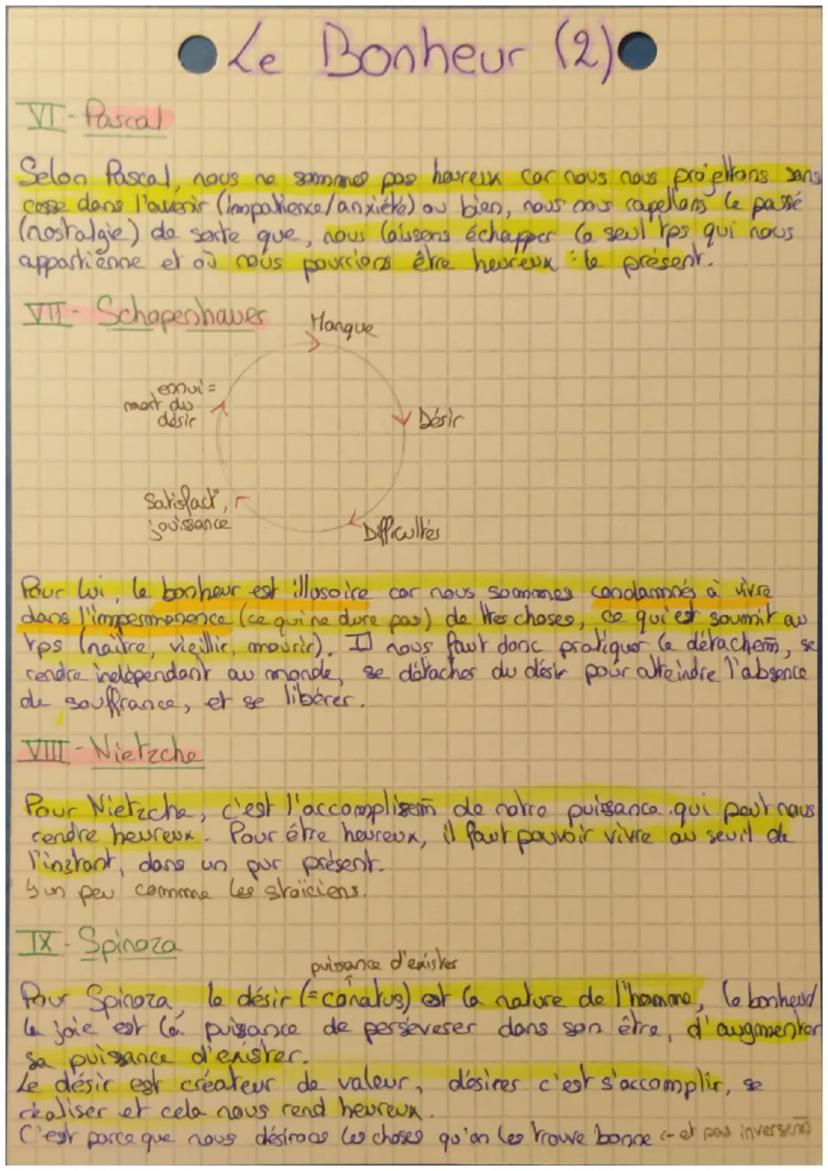 Le Bonheur (2)
VI - Pascal
Selon Pascal, nous ne sommes pas heureux car nous nous projettons sans
cesse dans l'avenir (impatience/anxiété) ou bien, nous nous rappellons le passé
(nostalgie) de sorte que, nous laissons échapper le seul tps qui nous
appartiènne et où nous pourrions être heureux : le présent.
VII - Schopenhauer
Manque
ennui =
mort du
désir
Désir
Satisfact°,
jouissance
Difficultés
Pour lui, le bonheur est illusoire car nous sommes condamnés à vivre
dans l'impermanence (ce qui ne dure pas) de ttes choses, ce qui est soumit au
tps (naître, vieillir, mourir). Il nous faut donc pratiquer le détachem̄, se
rendre indépendant au monde, se détacher du désir pour atteindre l'absence
de souffrance, et se libérer.
VIII - Nietzche
Pour Nietzche, c'est l'accomplissem̄ de notre puissance qui peut nous
rendre heureux. Pour être heureux, il faut pouvoir vivre au seuil de
l'instant, dans un pur présent.
↳ un peu comme les stoïciens.
IX - Spinoza
puissance d'exister
Pour Spinoza, le désir (=conatus) est la nature de l'homme, le bonheur/
la joie est la puissance de perséverer dans son être, d'augmenter
sa puissance d'exister.
Le désir est créateur de valeur, désirer c'est s'accomplir, se
réaliser et cela nous rend heureux.
C'est parce que nous désirons les choses qu'on les trouve bonne ← et pas inversem̄